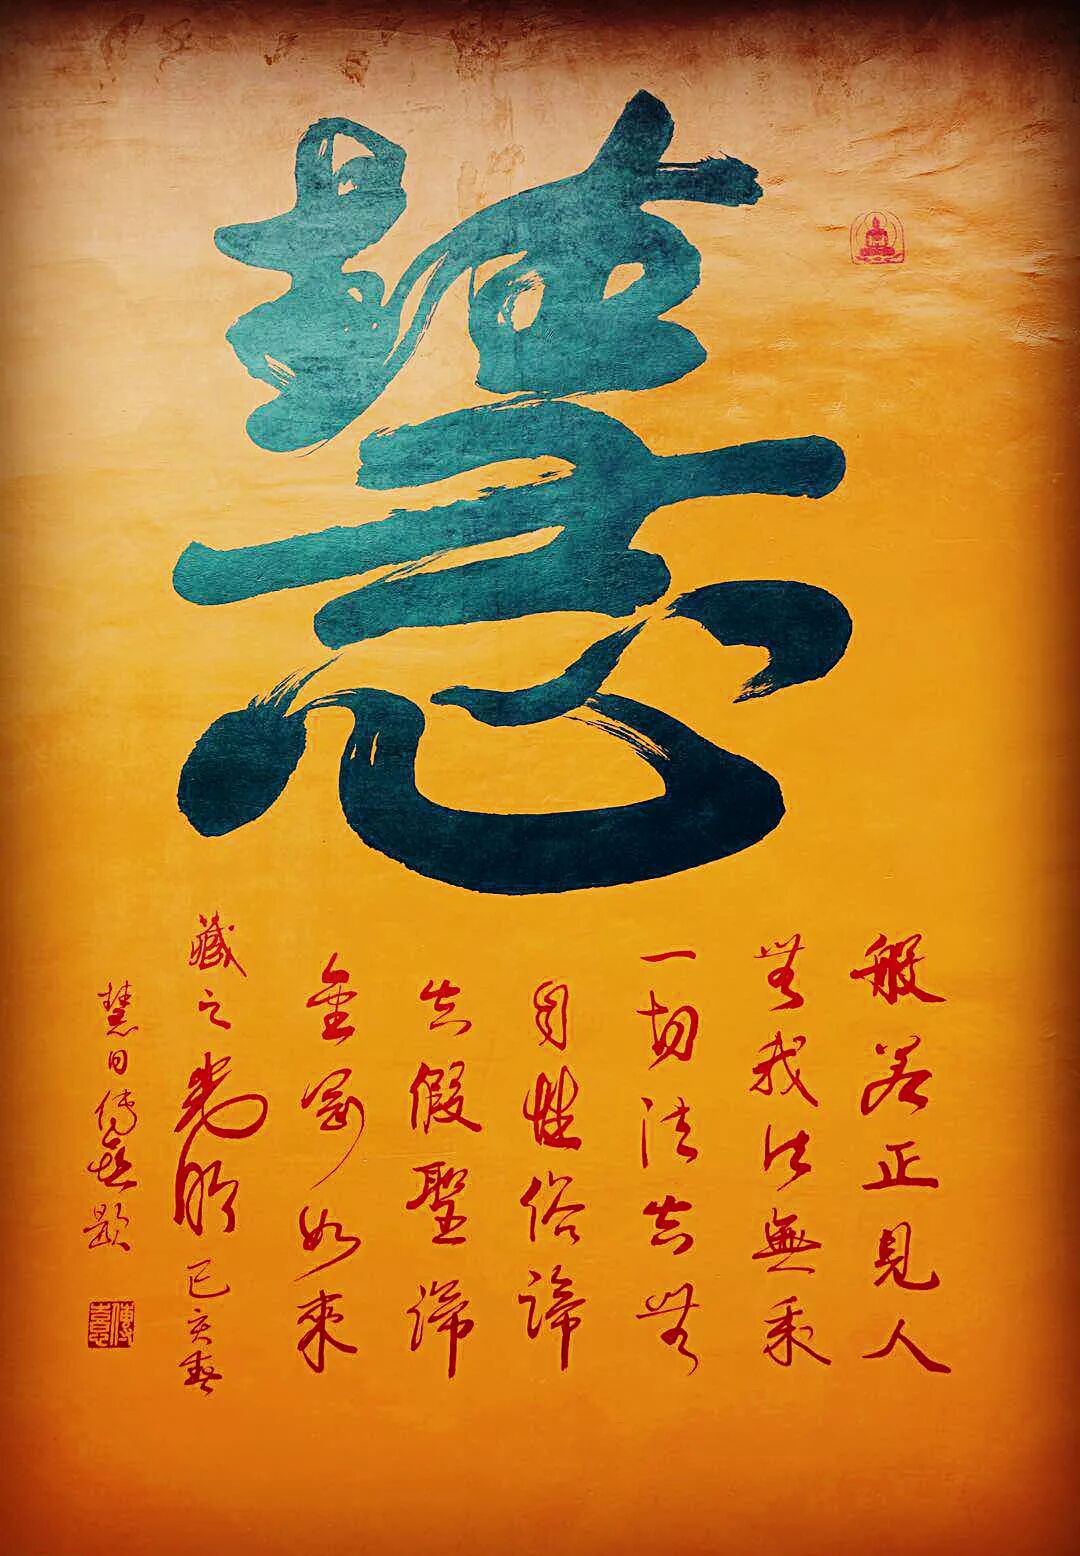 慧
般若正見人
無我法無我
一切法皆無
自性俗諦
皆假聖諦
金剛如來
藏之光明 己亥春
慧日傳喜題
傳喜